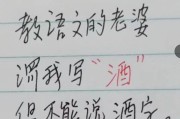 教语文的老婆
调我写“酒”
但不能说酒字。